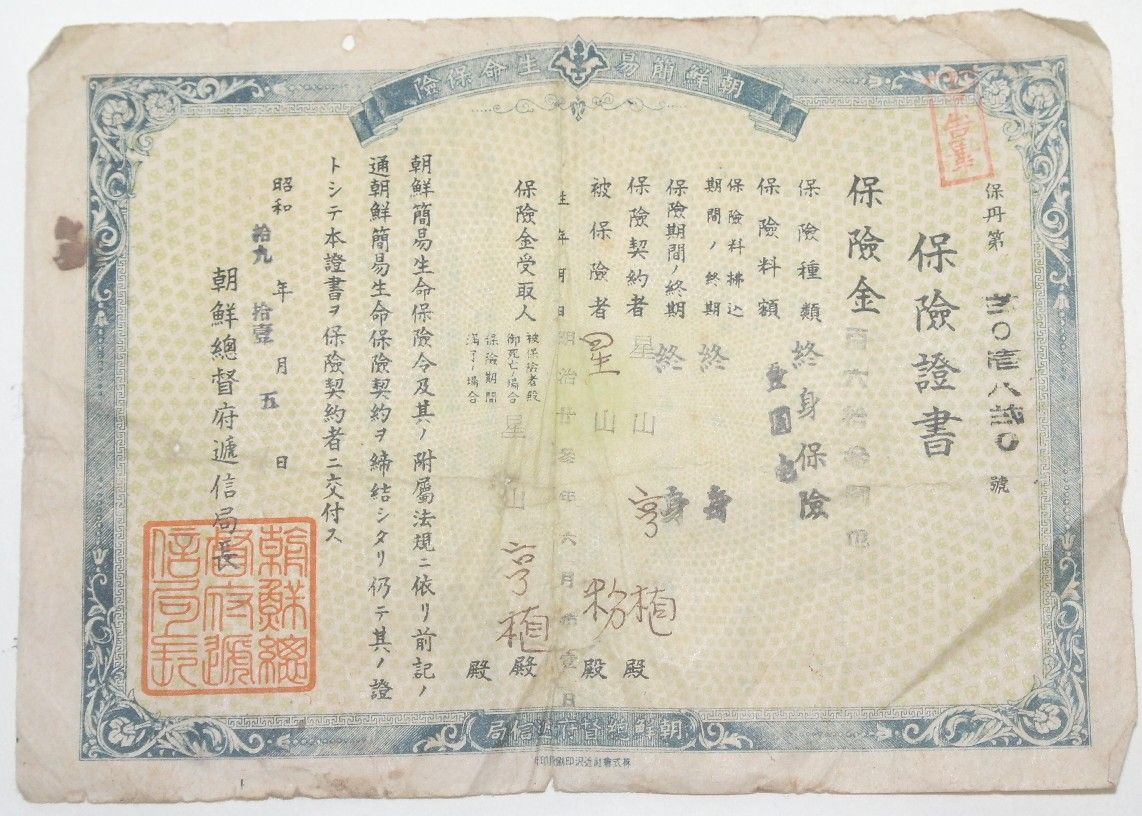 朝鮮簡易生命保險
保丹第 號
保險證書
保險金
保險種類 終身保險
保險料額
保險料拂込期間ノ終期 終身
保險期間ノ終期 終身
保險契約者 星山亨植 殿
被保險者 星山 殿
生年月日 明治廿參年六月 壹日
保險金受取人
被保險者殿御死亡ノ場合 星山亨植 殿
保險期間滿了ノ場合 殿
朝鮮簡易生命保險令及其ノ附屬法規ニ依リ前記ノ
通朝鮮簡易生命保險契約ヲ締結シタリ仍テ其ノ證
トシテ本證書ヲ保險契約者ニ交付ス
昭和拾九年拾壹月五日
朝鮮總督府遞信局長
朝鮮總督府遞信局長
朝鮮總督府遞信局